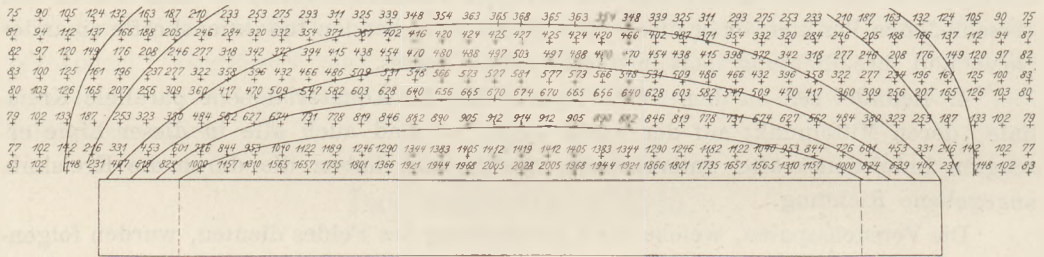 75 90 105 124 132 163 187 210 233 253 275 293 311 325 339 348 354 363 365 368 365 363 354 348 339 325 311 293 275 253 233 210 187 163 132 124 105 90 75
94 112 137 166 188 205 246 284 320 332 354 371 387 402 416 420 424 425 427 425 424 420 402 387 371 354 332 320 284 246 205 188 166 137 112 94 87
82 97 120 149 176 208 246 277 318 342 372 394 415 438 454 470 480 488 497 503 497 488 470 454 438 415 398 372 342 318 277 246 208 176 149 120 97 82
83 100 125 161 196 237 277 322 358 396 432 466 486 509 531 548 566 573 577 581 577 573 566 548 531 509 486 466 432 396 358 322 277 196 161 125 100 83
80 103 126 165 207 256 309 360 417 470 509 547 582 603 628 640 656 665 670 674 670 665 656 640 628 603 582 547 509 470 417 360 309 256 207 165 126 103 80
79 102 133 187 253 323 484 562 627 674 731 778 819 846 882 890 905 912 914 912 905 890 882 846 819 778 731 674 627 562 484 380 323 253 187 133 102 79
77 102 142 216 331 453 601 726 844 953 1040 1122 1189 1246 1290 1344 1383 1405 1412 1419 1412 1405 1383 1344 1290 1246 1182 1122 1040 953 844 726 601 453 331 216 142 102 77
83 102 148 231 407 824 1000 1157 1310 1565 1657 1735 1801 1366 1921 1944 1968 2005 2028 2005 1968 1944 1921 1866 1801 1735 1657 1565 1310 1157 1000 824 639 407 231 148 102 83